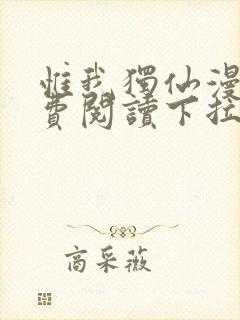 惟我獨仙漫
費閱讀下拉
高采薇